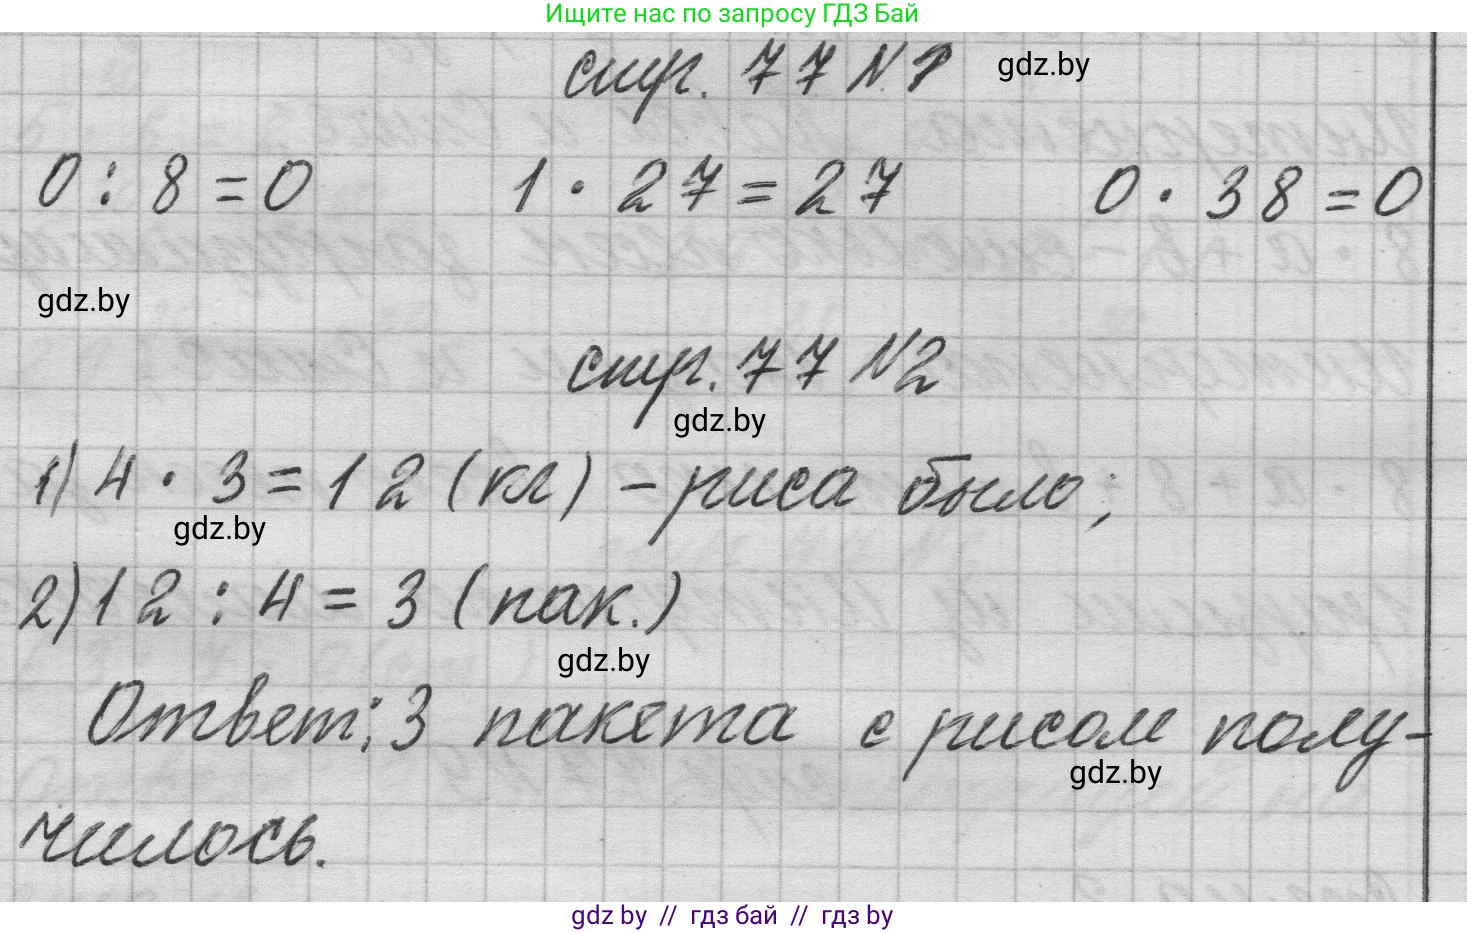 Ищите нас по запросу ГДЗ Бай
стр. 77 № 1 gdz.by
0 : 8 = 0 1 · 27 = 27 0 · 38 = 0
gdz.by
стр. 77 № 2
gdz.by
1) 4 · 3 = 12 (кг) – риса было;
gdz.by
2) 12 : 4 = 3 (пак.)
gdz.by
Ответ: 3 пакета с рисом полу-
gdz.by
чилось.
gdz by // гдз бай // гдз by